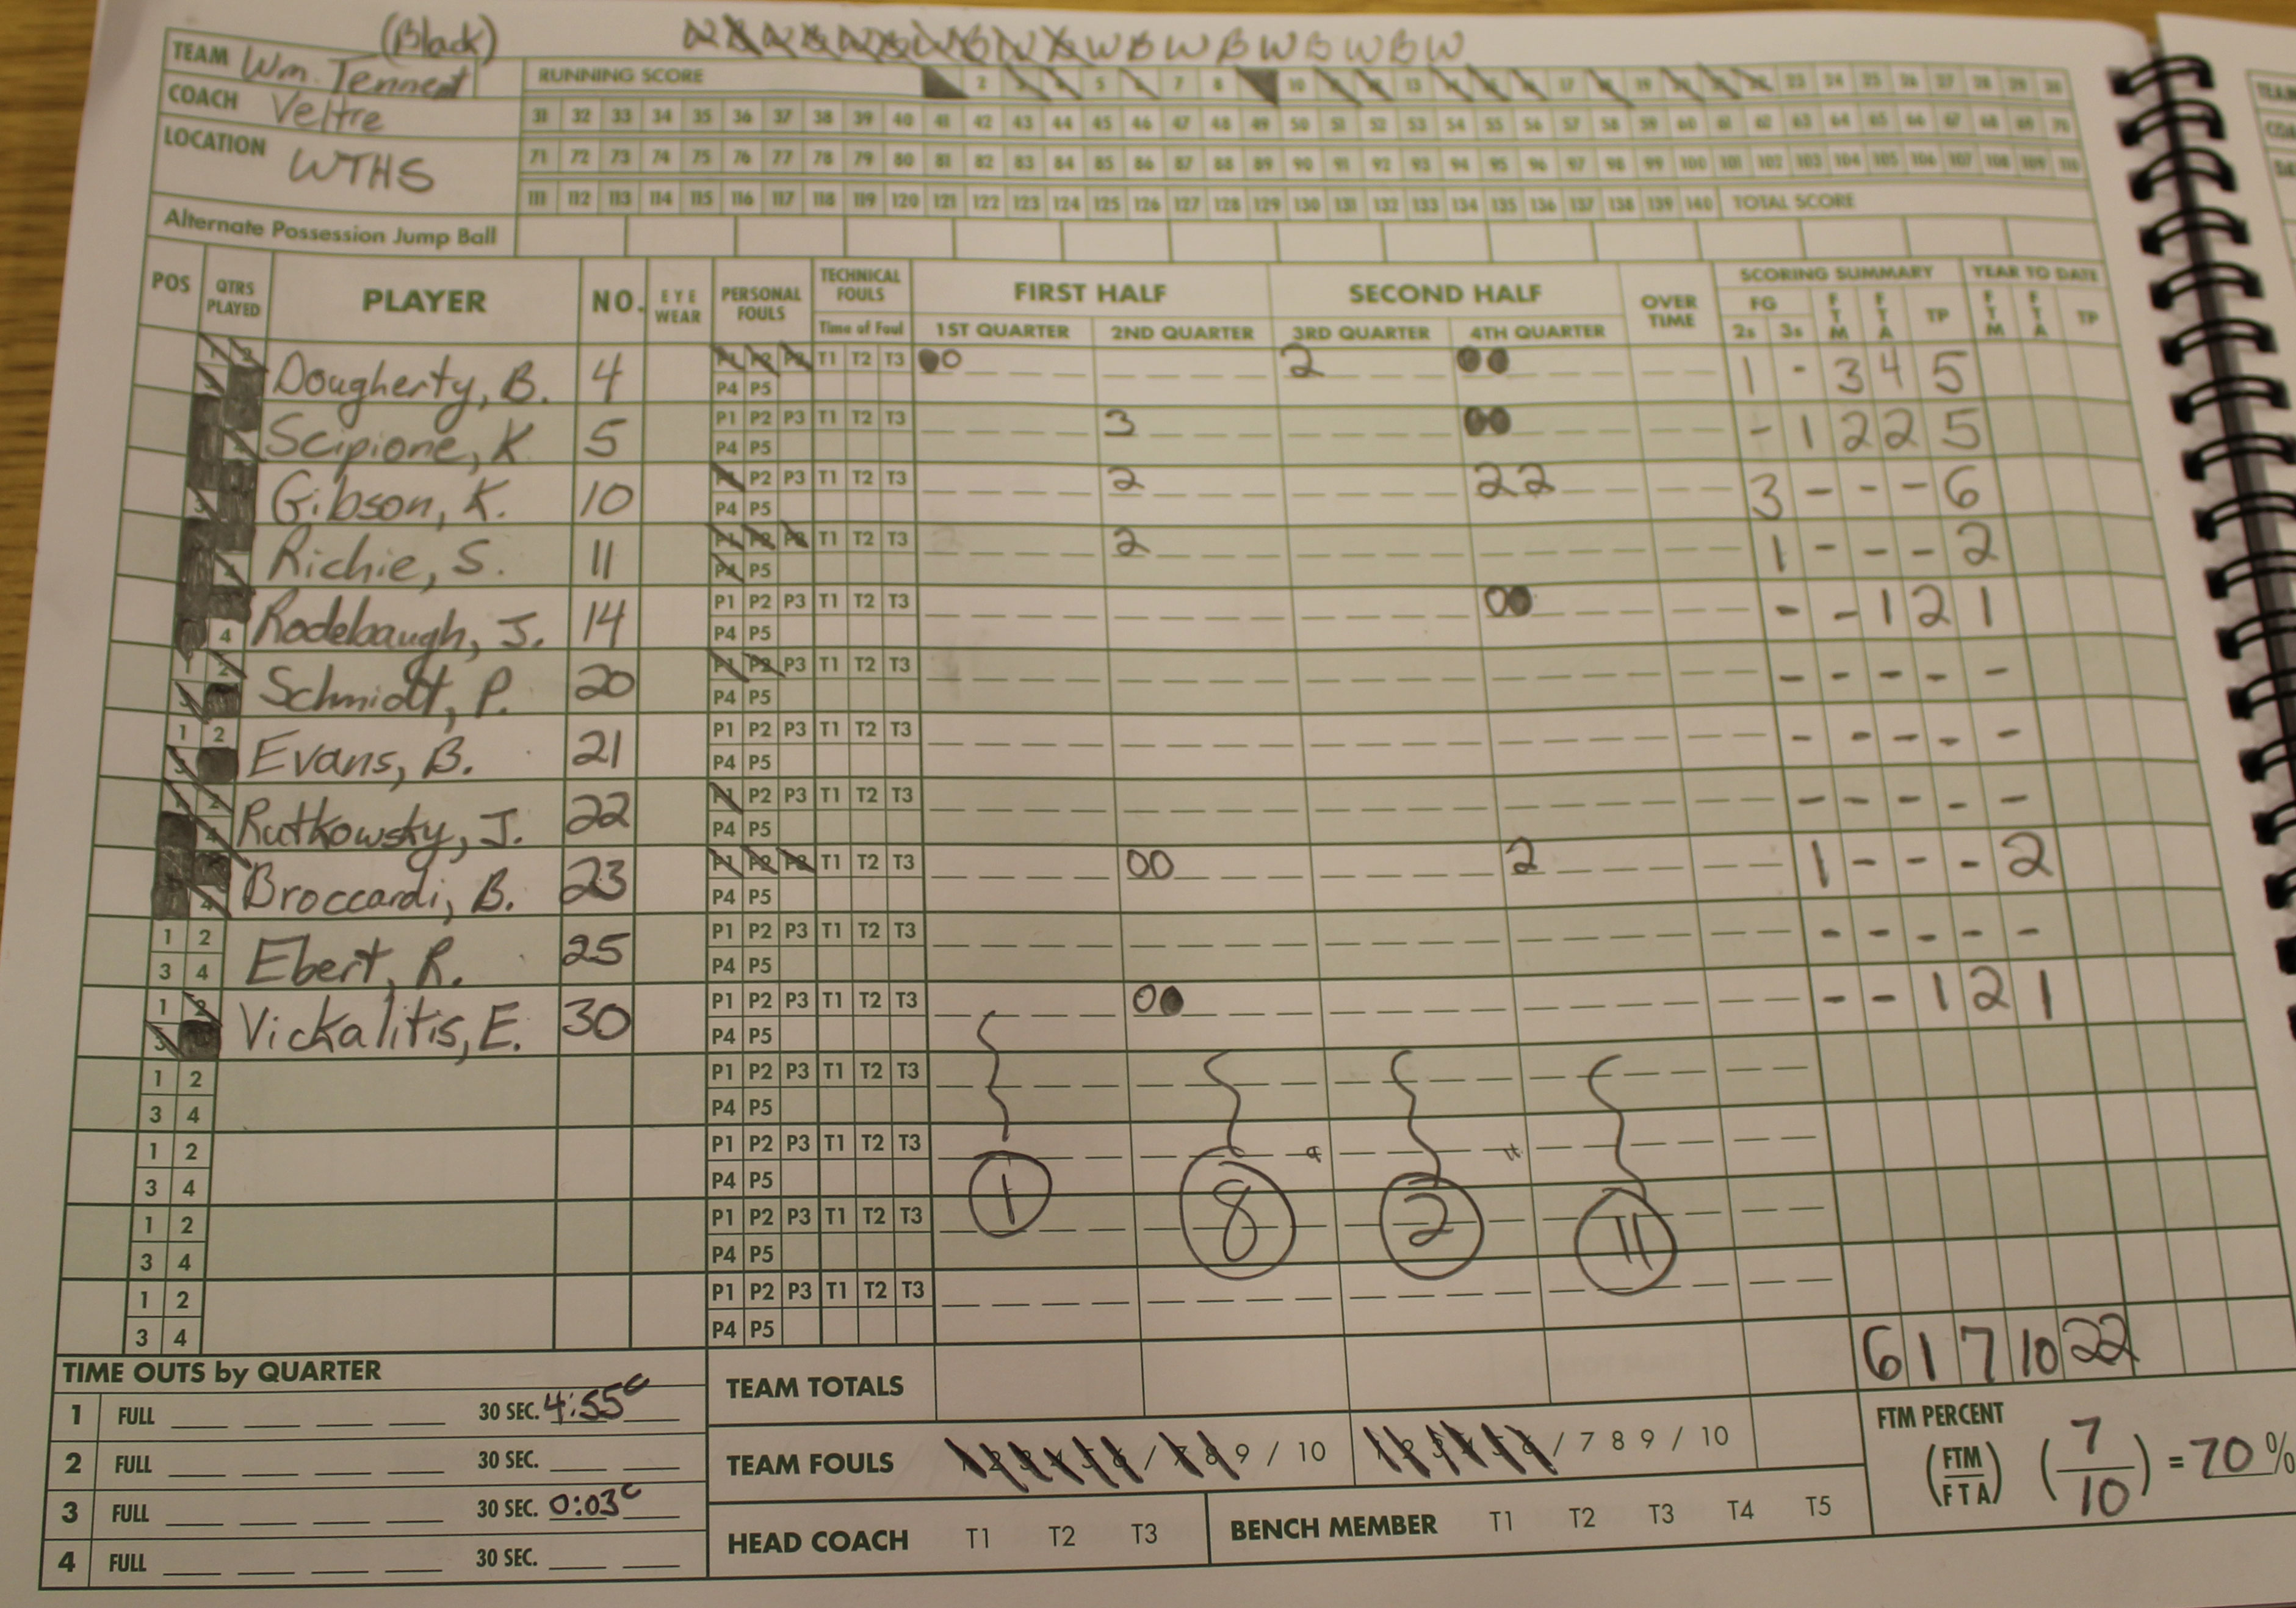 (Black)
TEAM Wm. Tennent
COACH Veltre
LOCATION WTHS
W B W B W B W B W
RUNNING SCORE 2 5 7 8 10 13 17 19 23 24 25 26 27 28 29 30
31 32 33 34 35 36 37 38 39 40 41 42 43 44 45 46 47 48 49 50 51 52 53 54 55 56 57 58 59 60 61 62 63 64 65 66 67 68 69 70
71 72 73 74 75 76 77 78 79 80 81 82 83 84 85 86 87 88 89 90 91 92 93 94 95 96 97 98 99 100 101 102 103 104 105 106 107 108 109 110
111 112 113 114 115 116 117 118 119 120 121 122 123 124 125 126 127 128 129 130 131 132 133 134 135 136 137 138 139 140 TOTAL SCORE
Alternate Possession Jump Ball
POS QTRS PLAYED PLAYER NO. EYE WEAR PERSONAL FOULS TECHNICAL FOULS Time of Foul FIRST HALF 1ST QUARTER 2ND QUARTER SECOND HALF 3RD QUARTER 4TH QUARTER OVER TIME SCORING SUMMARY FG 2s 3s FTM FTA TP YEAR TO DATE FTM FTA TP
Dougherty, B. 4 P1 P2 P3 T1 T2 T3 00 2 00 1 - 3 4 5
P4 P5
Scipione, K 5 P1 P2 P3 T1 T2 T3 3 00 - 1 2 2 5
P4 P5
Gibson, K. 10 P1 P2 P3 T1 T2 T3 2 2 2 3 - - - 6
P4 P5
Richie, S. 11 P1 P2 P3 T1 T2 T3 2 1 - - - 2
P4 P5
Rodebaugh, J. 14 P1 P2 P3 T1 T2 T3 00 - - 1 2 1
4 P4 P5
Schmidt, P. 20 P1 P2 P3 T1 T2 T3 - - - - -
P4 P5
1 2 Evans, B. 21 P1 P2 P3 T1 T2 T3 - - - - -
P4 P5
Rutkowsky, J. 22 P1 P2 P3 T1 T2 T3 - - - - -
P4 P5
Broccardi, B. 23 P1 P2 P3 T1 T2 T3 00 2 1 - - - 2
P4 P5
1 2 Ebert, R. 25 P1 P2 P3 T1 T2 T3 - - - - -
3 4 P4 P5
1 2 Vickalitis, E. 30 P1 P2 P3 T1 T2 T3 00 - - 1 2 1
P4 P5
1 2 P1 P2 P3 T1 T2 T3
3 4 P4 P5
1 2 P1 P2 P3 T1 T2 T3 9 11
3 4 P4 P5
1 2 P1 P2 P3 T1 T2 T3 1 8 2 11
3 4 P4 P5
1 2 P1 P2 P3 T1 T2 T3
3 4 P4 P5
TIME OUTS by QUARTER
1 FULL 30 SEC. 4:55 c
2 FULL 30 SEC.
3 FULL 30 SEC. 0:03 c
4 FULL 30 SEC.
TEAM TOTALS 6 1 7 10 22
TEAM FOULS 1 2 3 4 5 6 / 7 8 9 / 10 1 2 3 4 5 6 / 7 8 9 / 10
HEAD COACH T1 T2 T3 BENCH MEMBER T1 T2 T3 T4 T5
FTM PERCENT
(FTM/FTA) (7/10) = 70 %